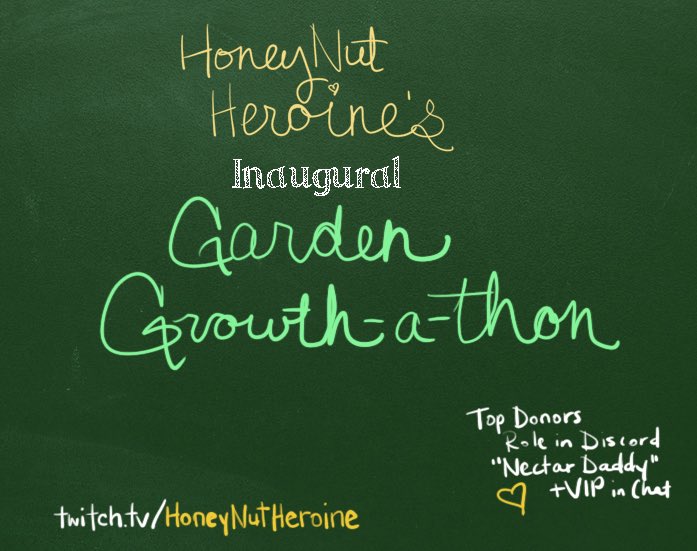 HoneyNut
Heroine's
Inaugural
Garden
Growth-a-thon
Top Donors
Role in Discord
"Nectar Daddy"
+VIP in Chat
twitch.tv/HoneyNutHeroine